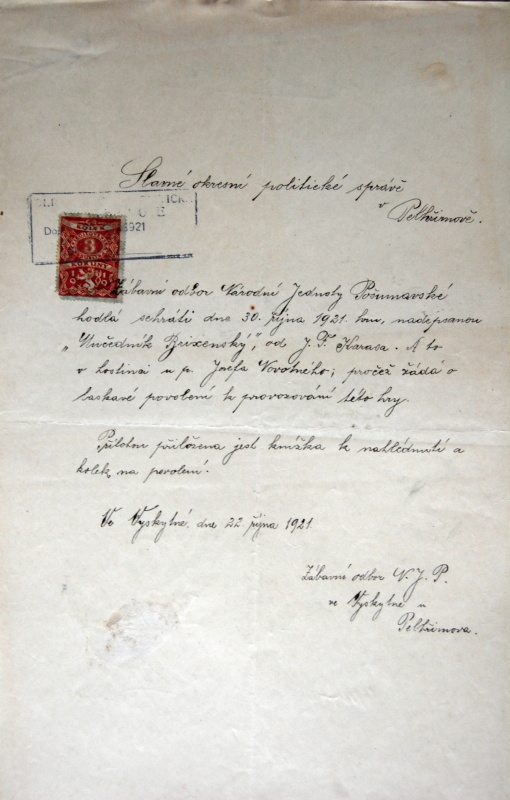 Slavné okresní politické správě
v
Pelhřimově.
1921
KOLEK
3
KORUNY
Zábavní odbor Národní Jednoty Pošumavské
hodlá sehráti dne 30. října 1921 hru, nadepsanou
„Mučedník Brixenský", od J. F. Karasa. A to
v hostinci u p. Josefa Novotného; pročež žádá o
laskavé povolení k provozování této hry.
Přitom přiložena jest knížka k nahlédnutí a
kolek na povolení.
Ve Vyskytné, dne 22 října 1921.
Zábavní odbor N. J. P.
ve Vyskytné u
Pelhřimova.